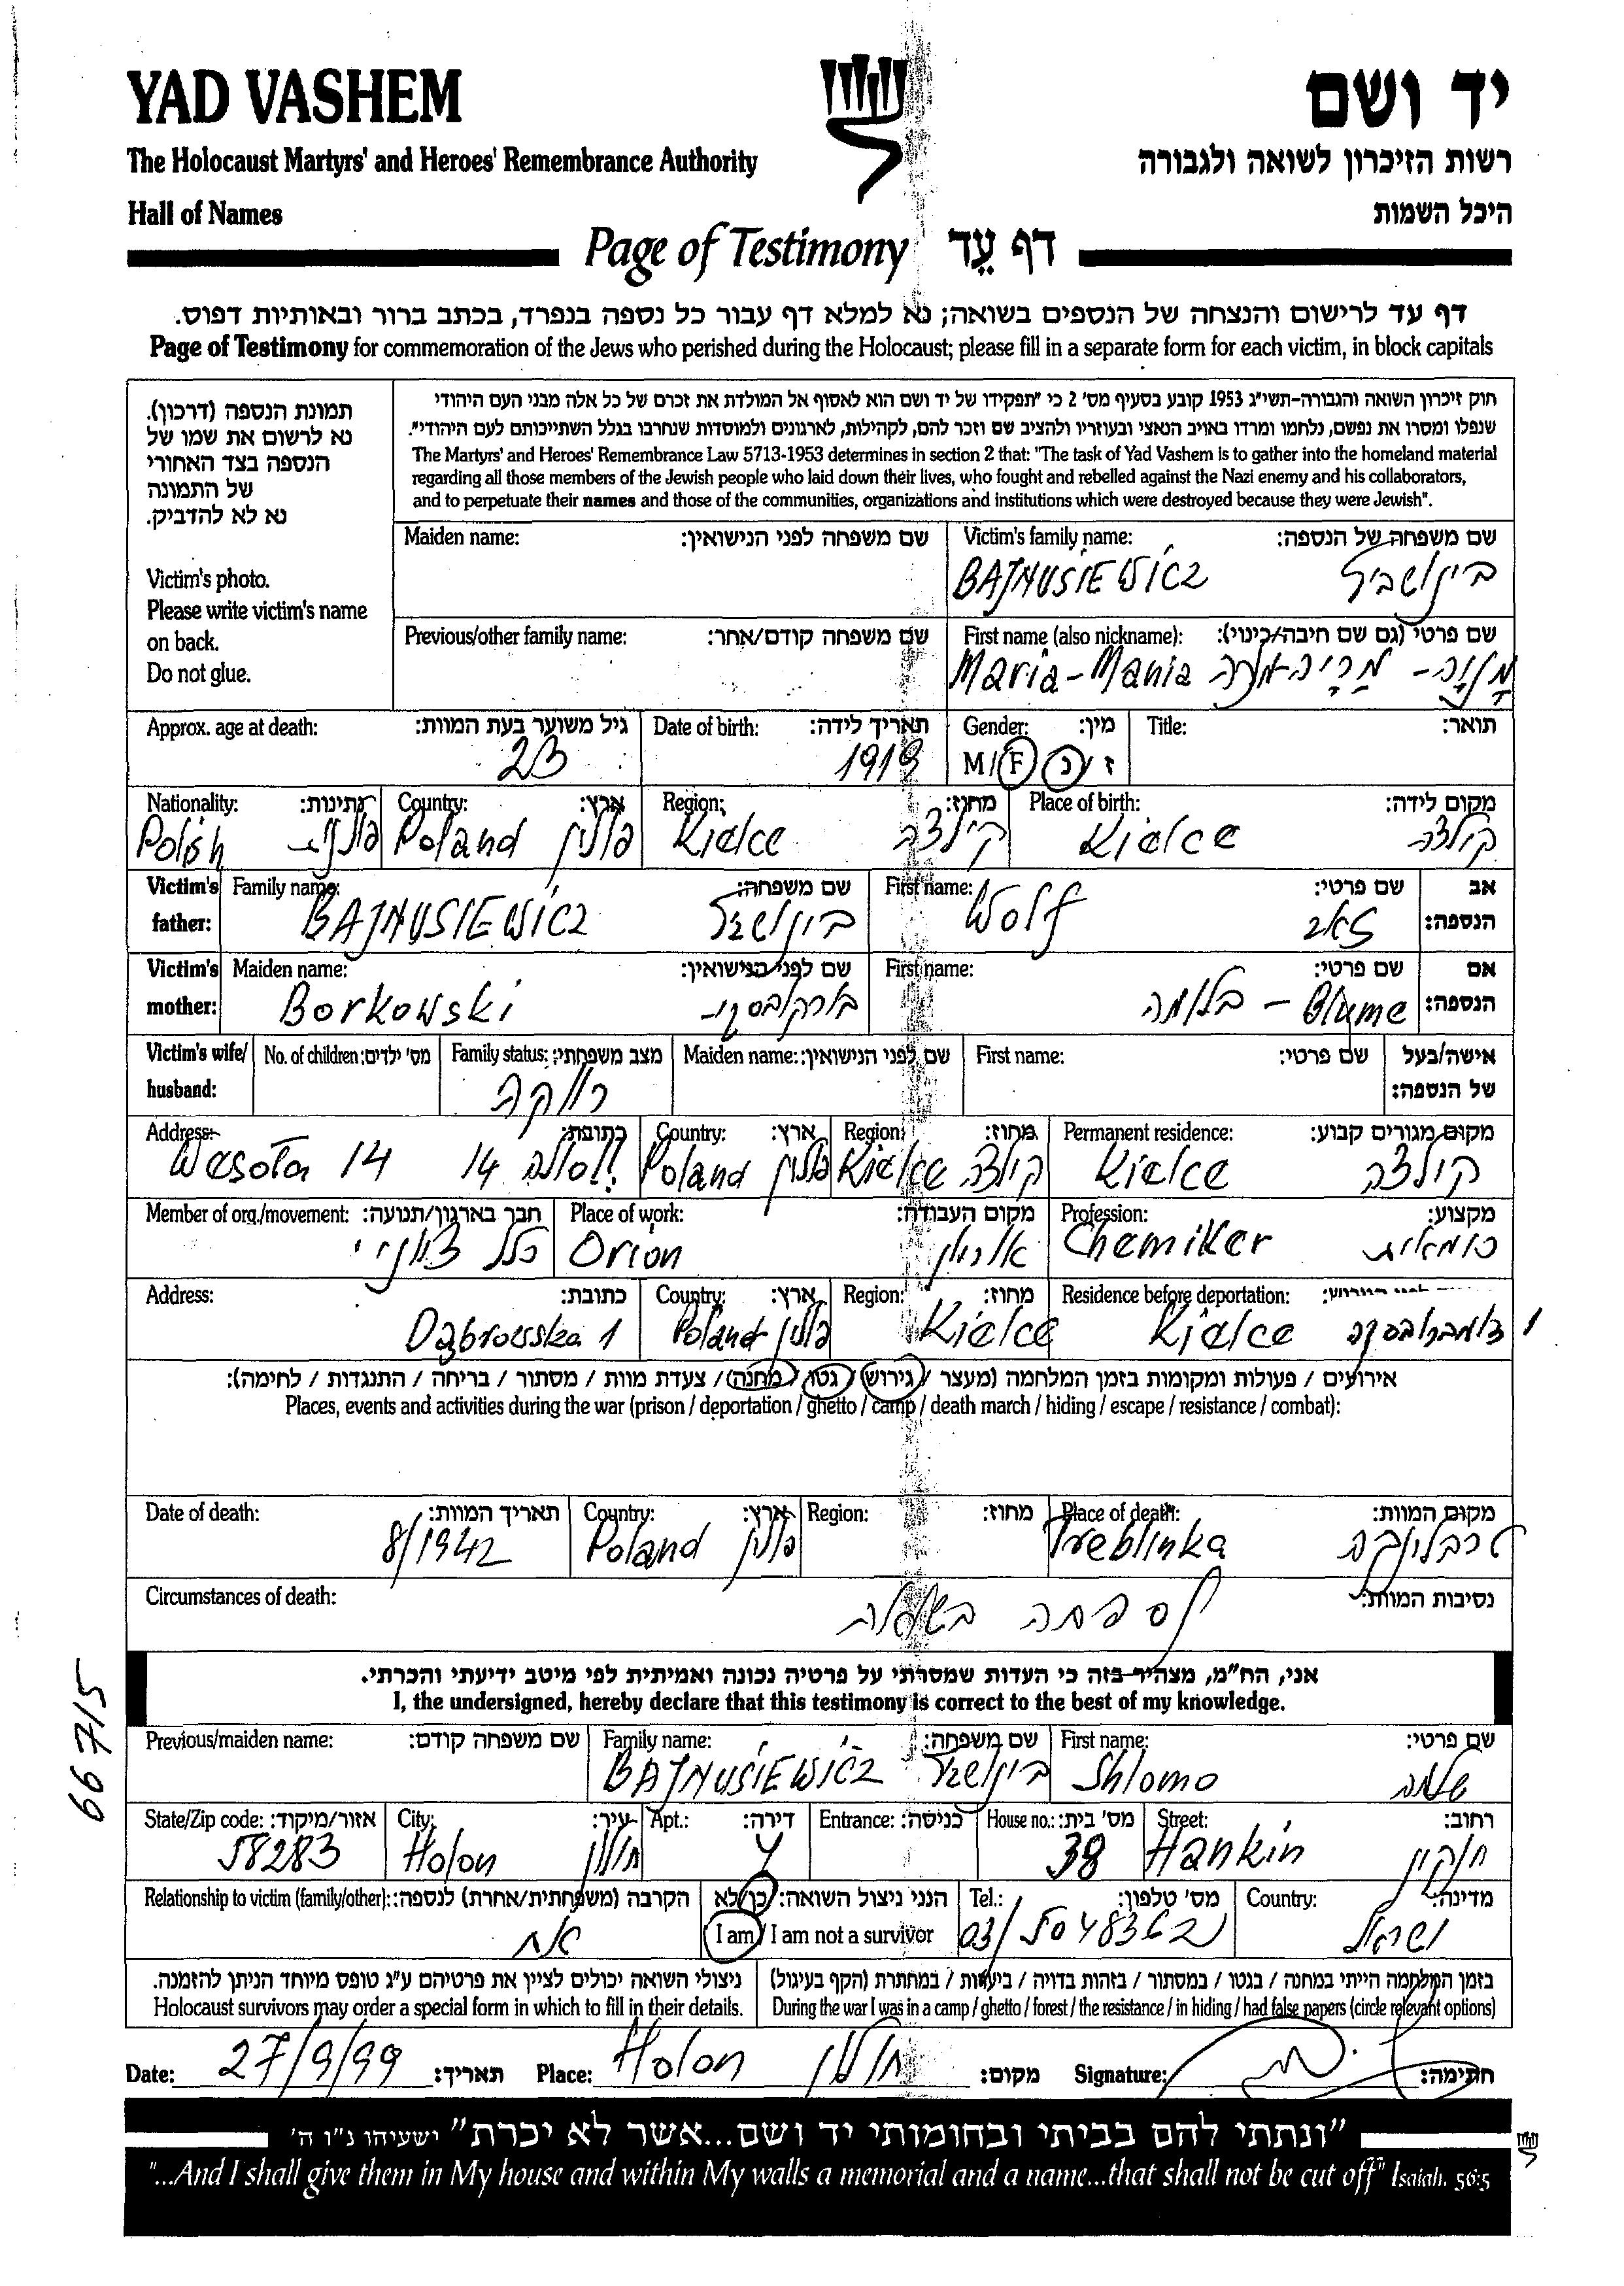 YAD VASHEM יד ושם
The Holocaust Martyrs' and Heroes' Remembrance Authority רשות הזיכרון לשואה ולגבורה
Hall of Names היכל השמות
Page of Testimony דף עֵד
דף עד לרישום והנצחה של הנספים בשואה; נא למלא דף עבור כל נספה בנפרד, בכתב ברור ובאותיות דפוס.
Page of Testimony for commemoration of the Jews who perished during the Holocaust; please fill in a separate form for each victim, in block capitals
תמונת הנספה (דרכון).
נא לרשום את שמו של
הנספה בצד האחורי
של התמונה
נא לא להדביק.
Victim's photo.
Please write victim's name
on back.
Do not glue.
חוק זיכרון השואה והגבורה-תשי"ג 1953 קובע בסעיף מס' 2 כי "תפקידו של יד ושם הוא לאסוף אל המולדת את זכרם של כל אלה מבני העם היהודי
שנפלו ומסרו את נפשם, נלחמו ומרדו באויב הנאצי ובעוזריו ולהציב שם וזכר להם, לקהילות, לארגונים ולמוסדות שנחרבו בגלל השתייכותם לעם היהודי".
The Martyrs' and Heroes' Remembrance Law 5713-1953 determines in section 2 that: "The task of Yad Vashem is to gather into the homeland material
regarding all those members of the Jewish people who laid down their lives, who fought and rebelled against the Nazi enemy and his collaborators,
and to perpetuate their names and those of the communities, organizations and institutions which were destroyed because they were Jewish".
Maiden name: שם משפחה לפני הנישואין: Victim's family name: שם משפחה של הנספה:
BAJNUSIEWICZ
Previous/other family name: שם משפחה קודם/אחר: First name (also nickname): שם פרטי (גם שם חיבה/כינוי):
Maria-Mania
Approx. age at death: גיל משוער בעת המוות: Date of birth: תאריך לידה: Gender: מין: Title: תואר:
23 1919 M/F ז/נ
Nationality: נתינות: Country: ארץ: Region: מחוז: Place of birth: מקום לידה:
Polish Poland פולין Kielce קילצה Kielce קילצה
Victim's father: Family name: שם משפחה: First name: שם פרטי: אב הנספה:
BAJNUSIEWICZ Wolf זאב
Victim's mother: Maiden name: שם לפני הנישואין: First name: שם פרטי: אם הנספה:
Borkowski בורקובסקי בלומה - Blume
Victim's wife/ husband: No. of children: מס' ילדים: Family status: מצב משפחתי: Maiden name: שם לפני הנישואין: First name: שם פרטי: אישה/בעל של הנספה:
רווקה
Address: כתובת: Country: ארץ: Region: מחוז: Permanent residence: מקום מגורים קבוע:
Wesoła 14 14 Poland פולין Kielce קילצה Kielce קילצה
Member of org./movement: חבר בארגון/תנועה: Place of work: מקום העבודה: Profession: מקצוע:
Orion אוריון Chemiker
Address: כתובת: Country: ארץ: Region: מחוז: Residence before deportation:
Dąbrowska 1 Poland פולין Kielce Kielce 1
אירועים / פעולות ומקומות בזמן המלחמה (מעצר / גירוש / גטו / מחנה / צעדת מוות / מסתור / בריחה / התנגדות / לחימה):
Places, events and activities during the war (prison / deportation / ghetto / camp / death march / hiding / escape / resistance / combat):
Date of death: תאריך המוות: Country: ארץ: Region: מחוז: Place of death: מקום המוות:
8/1942 Poland פולין Treblinka טרבלינקה
Circumstances of death: נסיבות המוות:
נספתה בשואה
אני, הח"מ, מצהיר בזה כי העדות שמסרתי על פרטיה נכונה ואמיתית לפי מיטב ידיעתי והכרתי.
I, the undersigned, hereby declare that this testimony is correct to the best of my knowledge.
66715
Previous/maiden name: שם משפחה קודם: Family name: שם משפחה: First name: שם פרטי:
BAJNUSIEWICZ Shlomo שלמה
State/Zip code: אזור/מיקוד: City: עיר: Apt.: דירה: Entrance: כניסה: House no.: מס' בית: Street: רחוב:
58283 Holon חולון 4 38 Hankin חנקין
Relationship to victim (family/other): הקרבה (משפחתית/אחרת) לנספה: הנני ניצול השואה: כן/לא Tel.: מס' טלפון: Country: מדינה:
אח I am / I am not a survivor 03/5048362 ישראל
ניצולי השואה יכולים לציין את פרטיהם ע"ג טופס מיוחד הניתן להזמנה. בזמן המלחמה הייתי במחנה / בגטו / במסתור / בזהות בדויה / ביערות / במחתרת (הקף בעיגול)
Holocaust survivors may order a special form in which to fill in their details. During the war I was in a camp / ghetto / forest / the resistance / in hiding / had false papers (circle relevant options)
Date: 27/9/99 תאריך: Place: Holon חולון מקום: Signature: חתימה:
"ונתתי להם בביתי ובחומותי יד ושם...אשר לא יכרת" ישעיהו נ"ו ה'
"...And I shall give them in My house and within My walls a memorial and a name...that shall not be cut off" Isaiah. 56:5